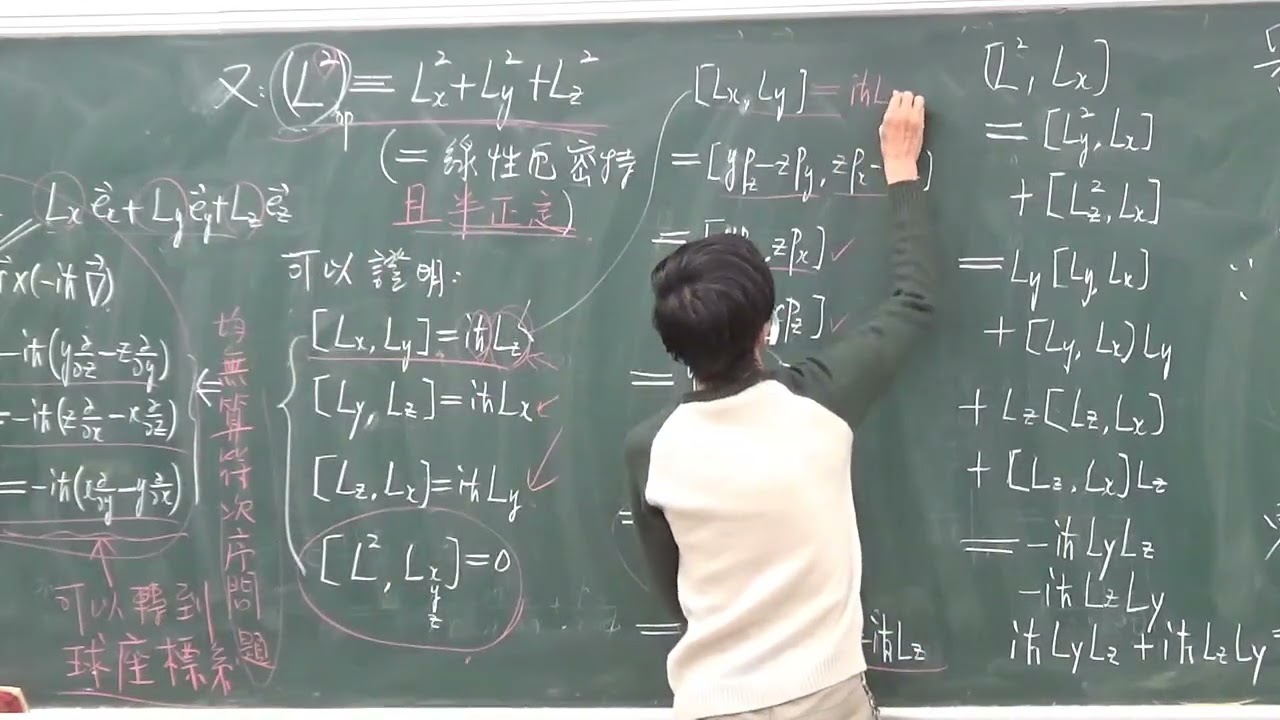 又: (L²)op = Lx² + Ly² + Lz²
(= 線性厄密特
且半正定)
Lx e⃗x + Ly e⃗y + Lz e⃗z
r⃗×(-iħ∇⃗)
-iħ(y∂/∂z - z∂/∂y)
= -iħ(z∂/∂x - x∂/∂z)
= -iħ(x∂/∂y - y∂/∂x)
可以轉到
球座標系
均無算符次序問題
可以證明:
[Lx, Ly] = iħLz
[Ly, Lz] = iħLx
[Lz, Lx] = iħLy
[L², Lx y z] = 0
[Lx, Ly] = iħL
= [ypz - zpy, zpx -
, zpx] ✓
pz] ✓
=
=
= -iħLz
[L², Lx]
= [Ly², Lx]
+ [Lz², Lx]
= Ly[Ly, Lx]
+ [Ly, Lx]Ly
+ Lz[Lz, Lx]
+ [Lz, Lx]Lz
= -iħLyLz
-iħLzLy
iħLyLz + iħLzLy =
∵